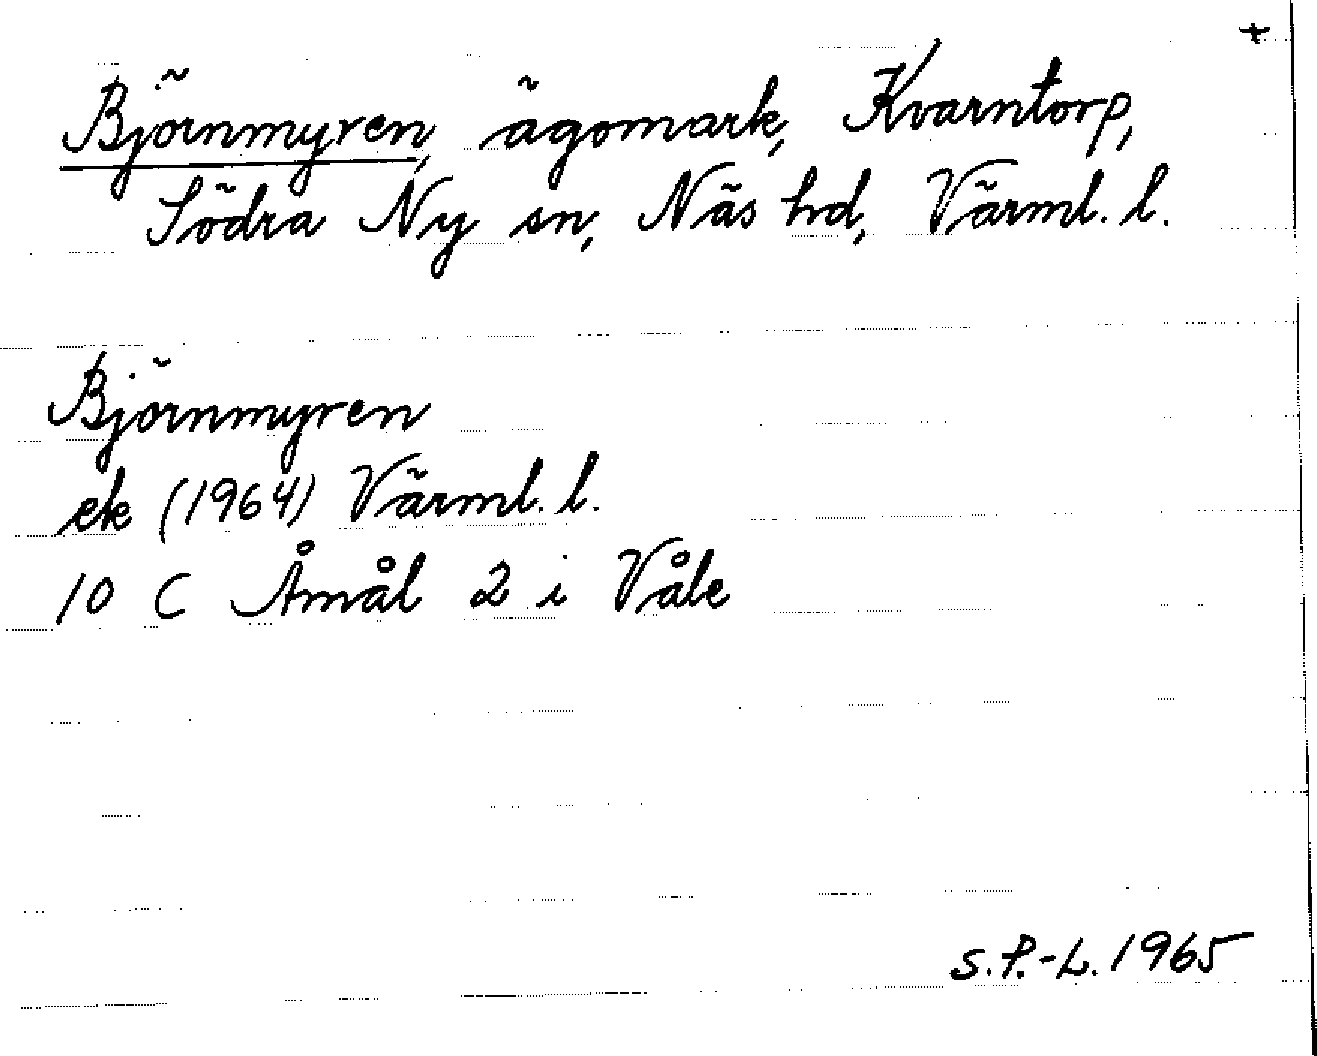 +
Björnmyren, ägomark, Kvarntorp,
Södra Ny sn, Näs hd, Värml. l.
Björnmyren
ek (1964) Värml. l.
10 C Åmål 2 i Våle
S.P.-L. 1965